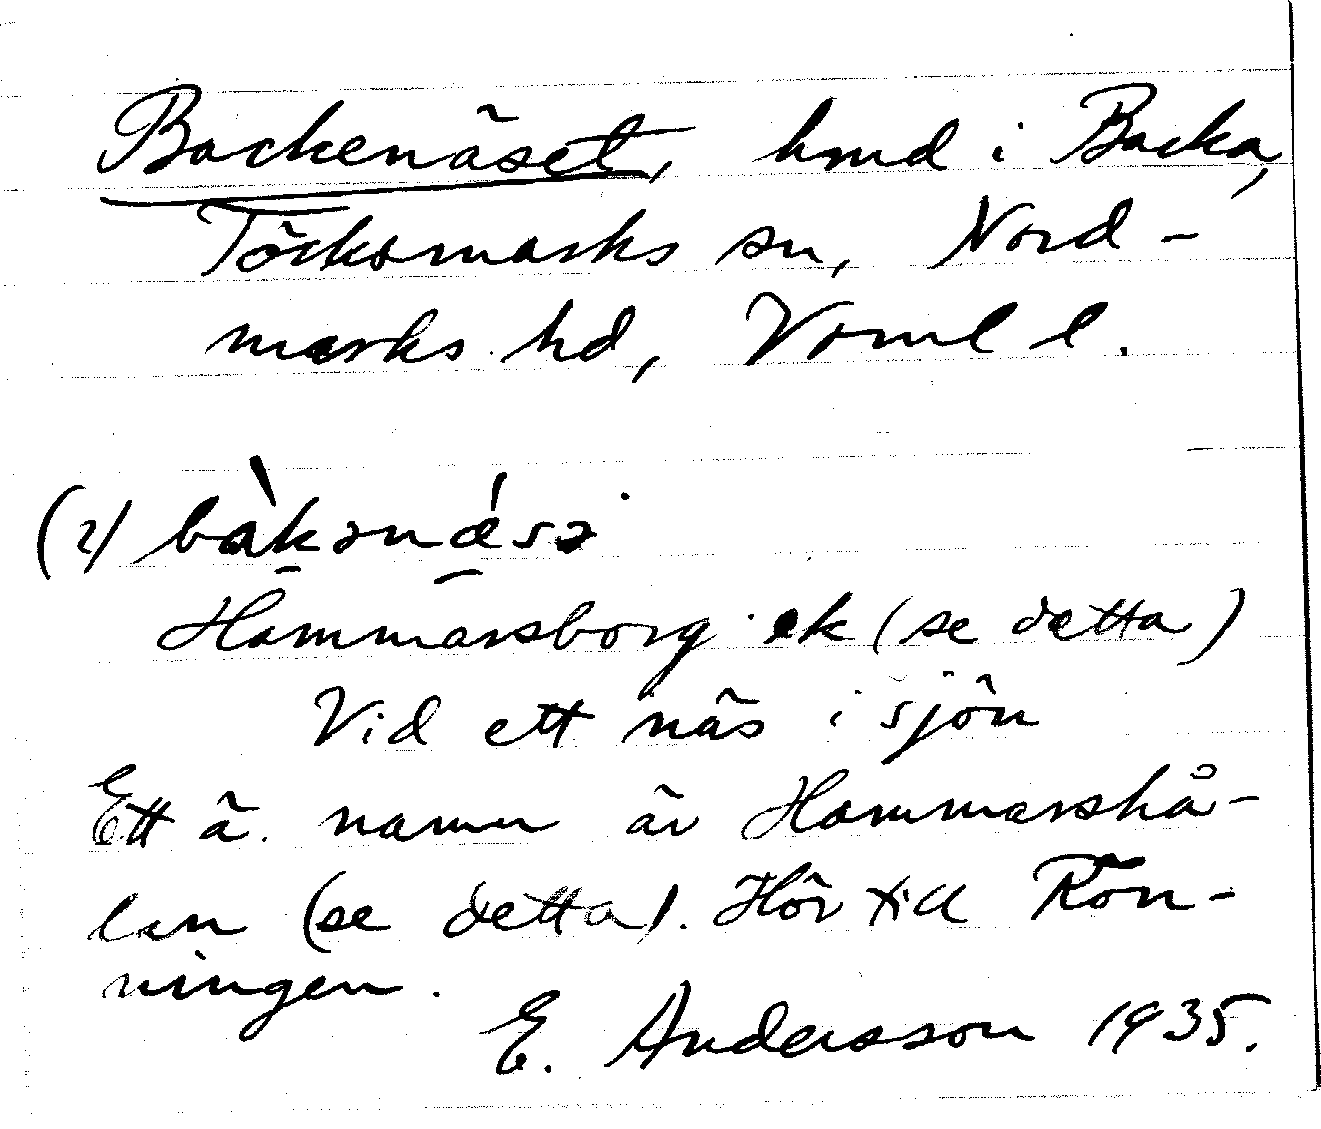 Backenäset, hmd i Backa,
Töcksmarks sn, Nord-
marks hd, Värml l.
(2) bàkənǽsə
Hammarsborg ek (se detta)
Vid ett näs i sjön
Ett ä. namn är Hammarshå-
lan (se detta). Hör till Rön-
ningen.
E. Andersson 1935.